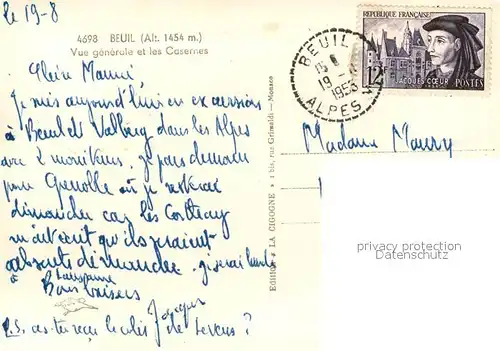 le 19-8
4698 BEUIL (Alt. 1454 m.)
Vue générale et les Casernes
Chère Mamé,
Je suis aujourd'hui en excursion
à Beuil et Valberg dans les Alpes
avec 2 moniteurs. je pars demain
pour Grenoble où je resterai
dimanche car les
m'ont écrit qu'ils seraient
absents dimanche. je serai lundi
à Lausanne
Bons baisers
Jacques
P.S. as-tu reçu le colis de ?
Edition " LA CIGOGNE " 1 bis, rue Grimaldi - Monaco
RÉPUBLIQUE FRANÇAISE
12F
JACQUES CŒUR
POSTES
BEUIL
15 H
19 - 8
1955
ALPES
Madame Maury
privacy protection
watermark